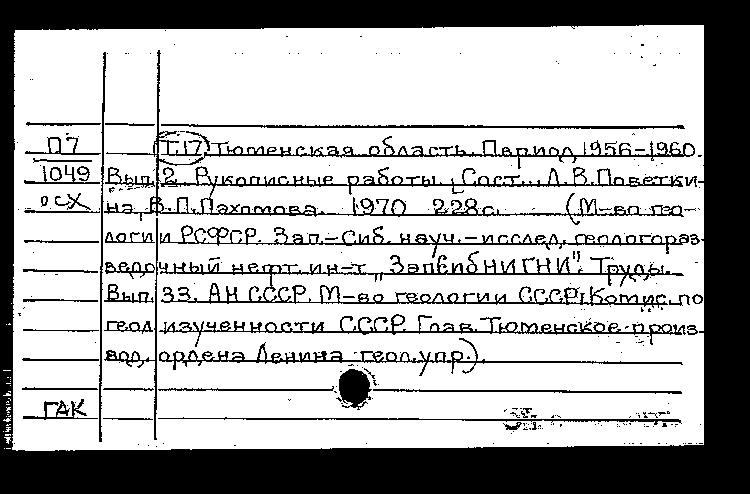 П7 Т.17. Тюменская область. Период 1956-1960.
1049 Вып. 2. Рукописные работы. [Сост.: Л.В.Поветки-
осх на, В.П.Пахомова. 1970 228с. (М-во гео-
логии РСФСР. Зап.-Сиб. науч.-исслед. геологораз-
ведочный нефт. ин-т „ЗапСибНИГНИ". Труды.
Вып. 33. АН СССР. М-во геологии СССР. Комис. по
геол. изученности СССР. Глав. Тюменское произ-
вод. ордена Ленина геол. упр.).
ГАК